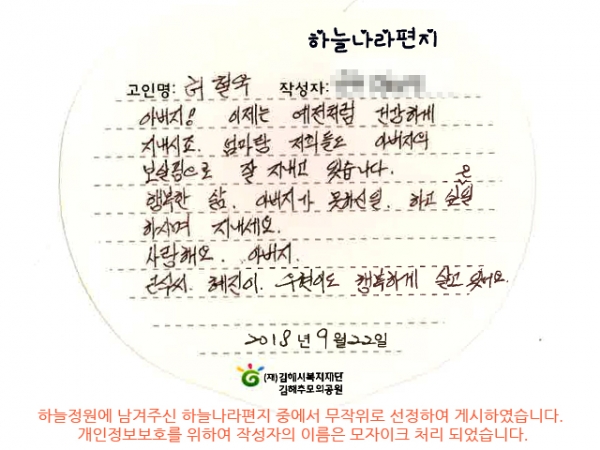 하늘나라편지
고인명: 허 철욱 작성자:
아버지! 이제는 예전처럼 건강하게
지내시죠. 엄마랑 저희들도 아버지의
보살핌으로 잘 지내고 있습니다.
행복한 삶. 아버지가 못하신일. 하고 싶은일
하시며 지내세요.
사랑해요. 아버지.
혜진이. 우현이도 행복하게 살고 있어요.
2018년 9월 22일
(재)김해시복지재단
김해추모의공원
하늘정원에 남겨주신 하늘나라편지 중에서 무작위로 선정하여 게시하였습니다.
개인정보보호를 위하여 작성자의 이름은 모자이크 처리 되었습니다.